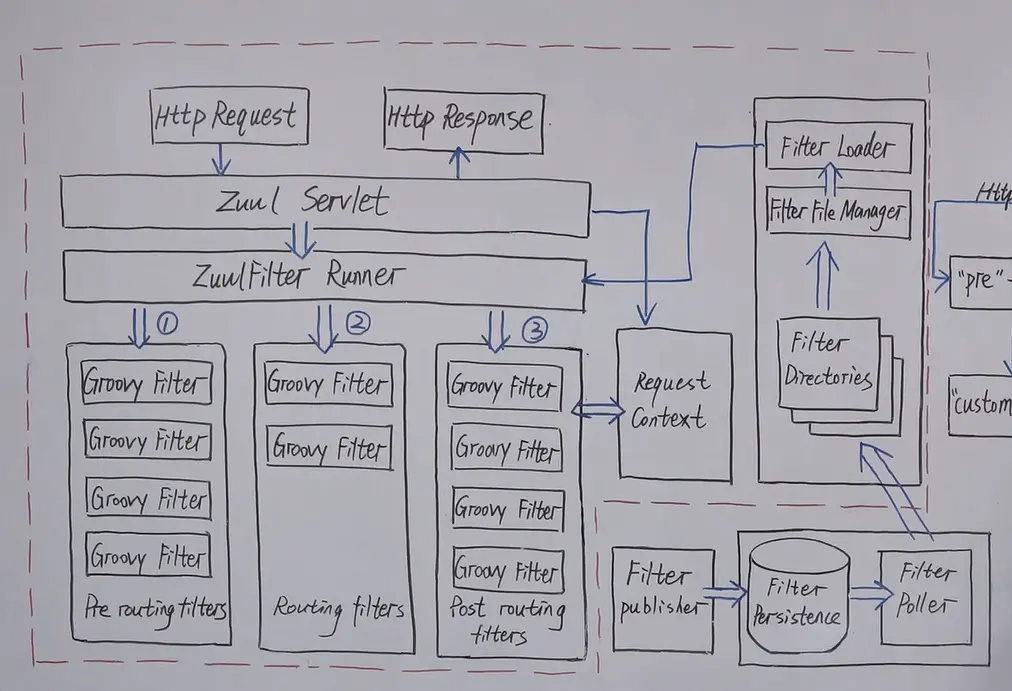 Http Request
Http Response
Zuul Servlet
ZuulFilter Runner
①
②
③
Groovy Filter
Groovy Filter
Groovy Filter
Groovy Filter
Pre routing filters
Groovy Filter
Groovy Filter
Routing filters
Groovy Filter
Groovy Filter
Groovy Filter
Groovy Filter
Post routing
filters
Request
Context
Filter Loader
Filter File Manager
Filter
Directories
Filter
publisher
Filter
Persistence
Filter
Poller
Http
"pre"
"custom